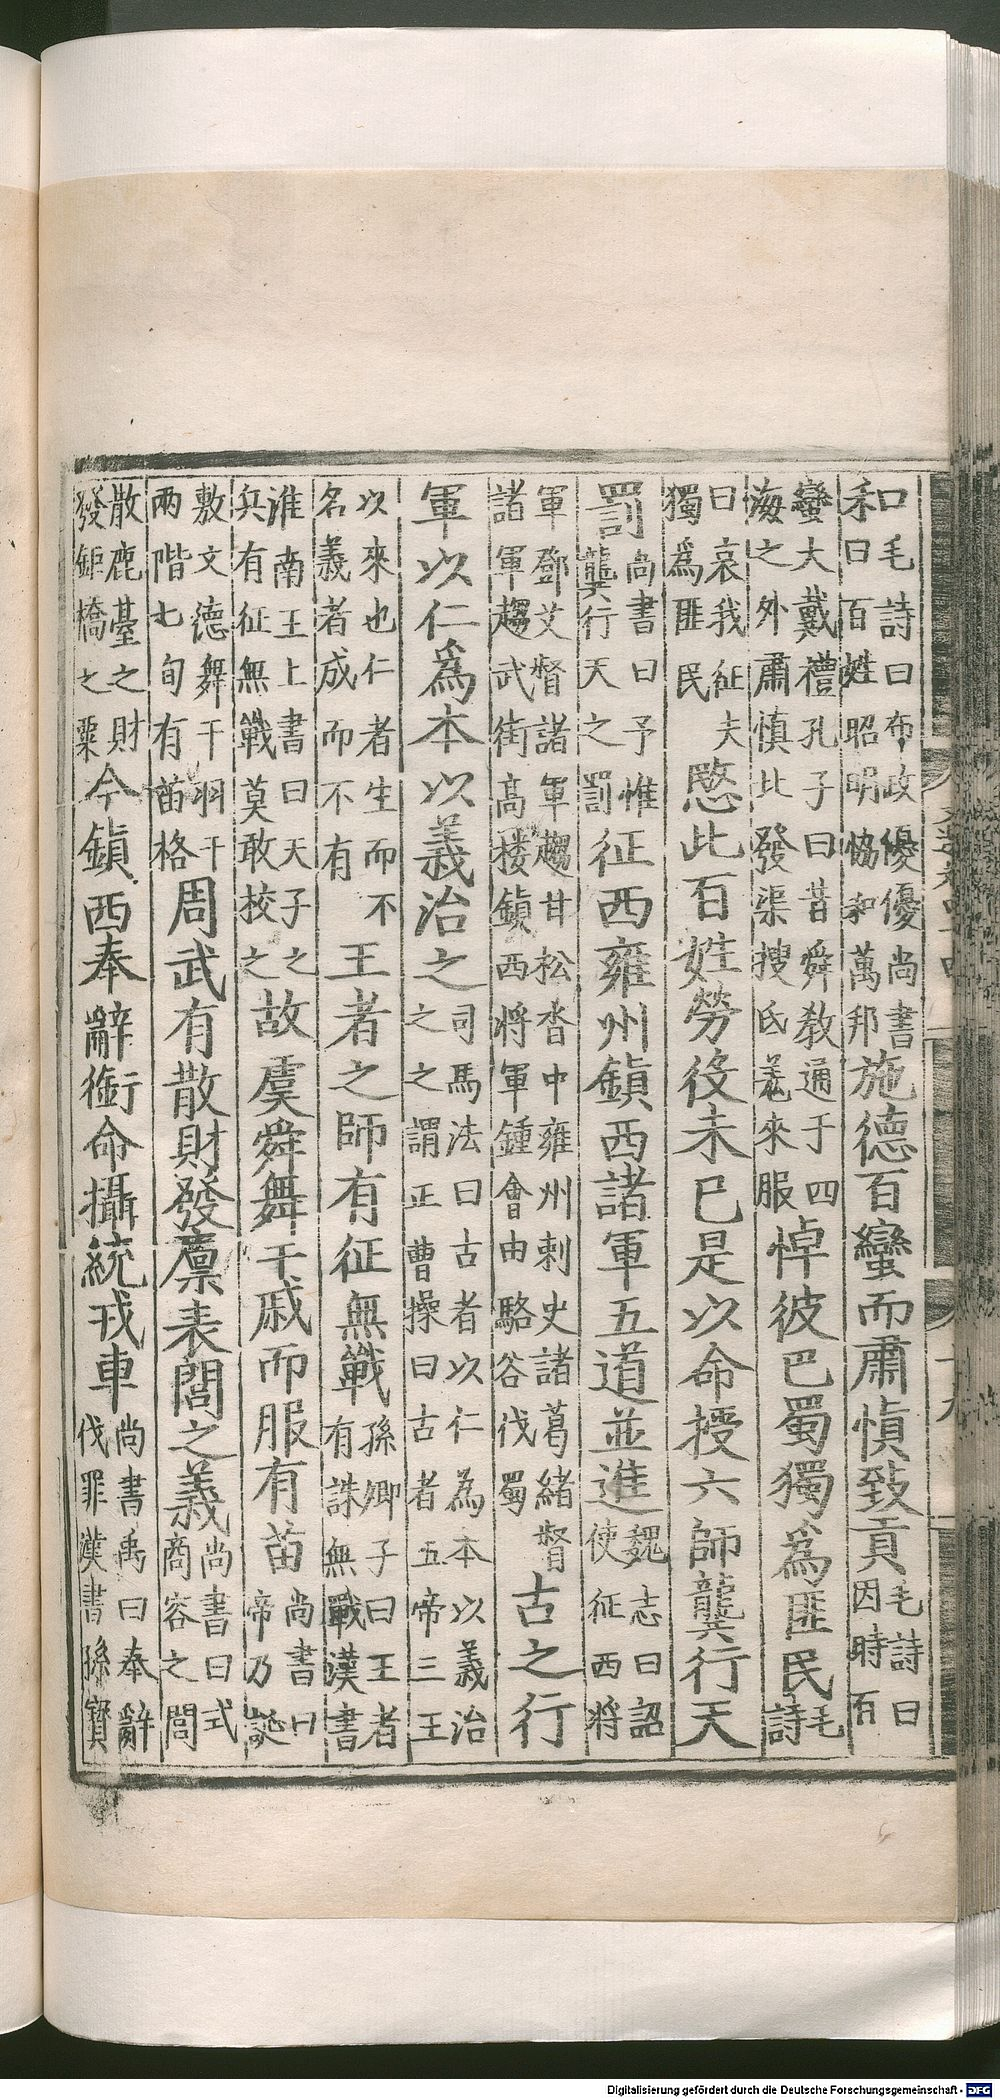 和毛詩曰布政優優尚書曰百姓昭明恊和萬邦施德百蠻而肅慎致貢毛詩曰因時百
蠻大戴禮孔子曰昔舜教通于四海之外肅慎北發渠搜氐羌來服悼彼巴蜀獨爲匪民毛詩
曰哀我征夫獨爲匪民愍此百姓勞役未已是以命授六師龔行天
罰尚書曰予惟龔行天之罰征西雍州鎮西諸軍五道並進魏志曰詔使征西將
軍鄧艾督諸軍趨甘松沓中雍州刺史諸葛緒督諸軍趨武街髙樓鎮西將軍鍾會由駱谷伐蜀古之行
軍以仁爲本以義治之司馬法曰古者以仁為本以義治之之謂正曹操曰古者五帝三王
以來也仁者生而不名義者成而不有王者之師有征無戰孫卿子曰王者有誅無戰漢書
淮南王上書曰天子之兵有征無戰莫敢校之故虞舜舞干戚而服有苗尚書曰帝乃誕
敷文德舞干羽于兩階七旬有苗格周武有散財發廩表閭之義尚書曰式商容之閭
散鹿臺之財發鉅橋之粟今鎮西奉辭銜命攝統戎車尚書禹曰奉辭伐罪漢書孫寳
Digitalisierung gefördert durch die Deutsche Forschungsgemeinschaft - DFG